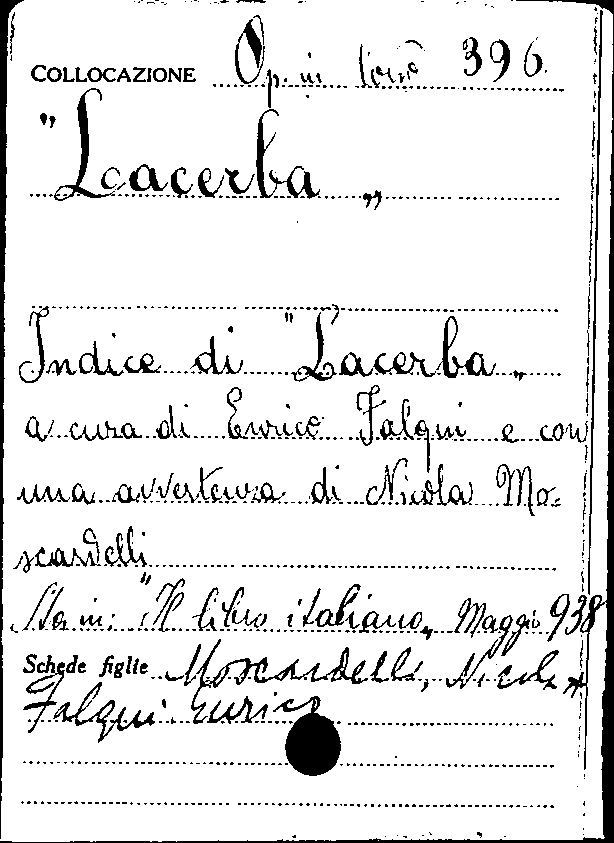 COLLOCAZIONE Op. in 396
"Lacerba„
Indice di "Lacerba„
a cura di Enrico Falqui e con
una avvertenza di Nicola Mo-
scardelli
Sta in: "Il libro italiano„ Maggio 938
Schede figlie Moscardelli, Nicola *
Falqui Enrico